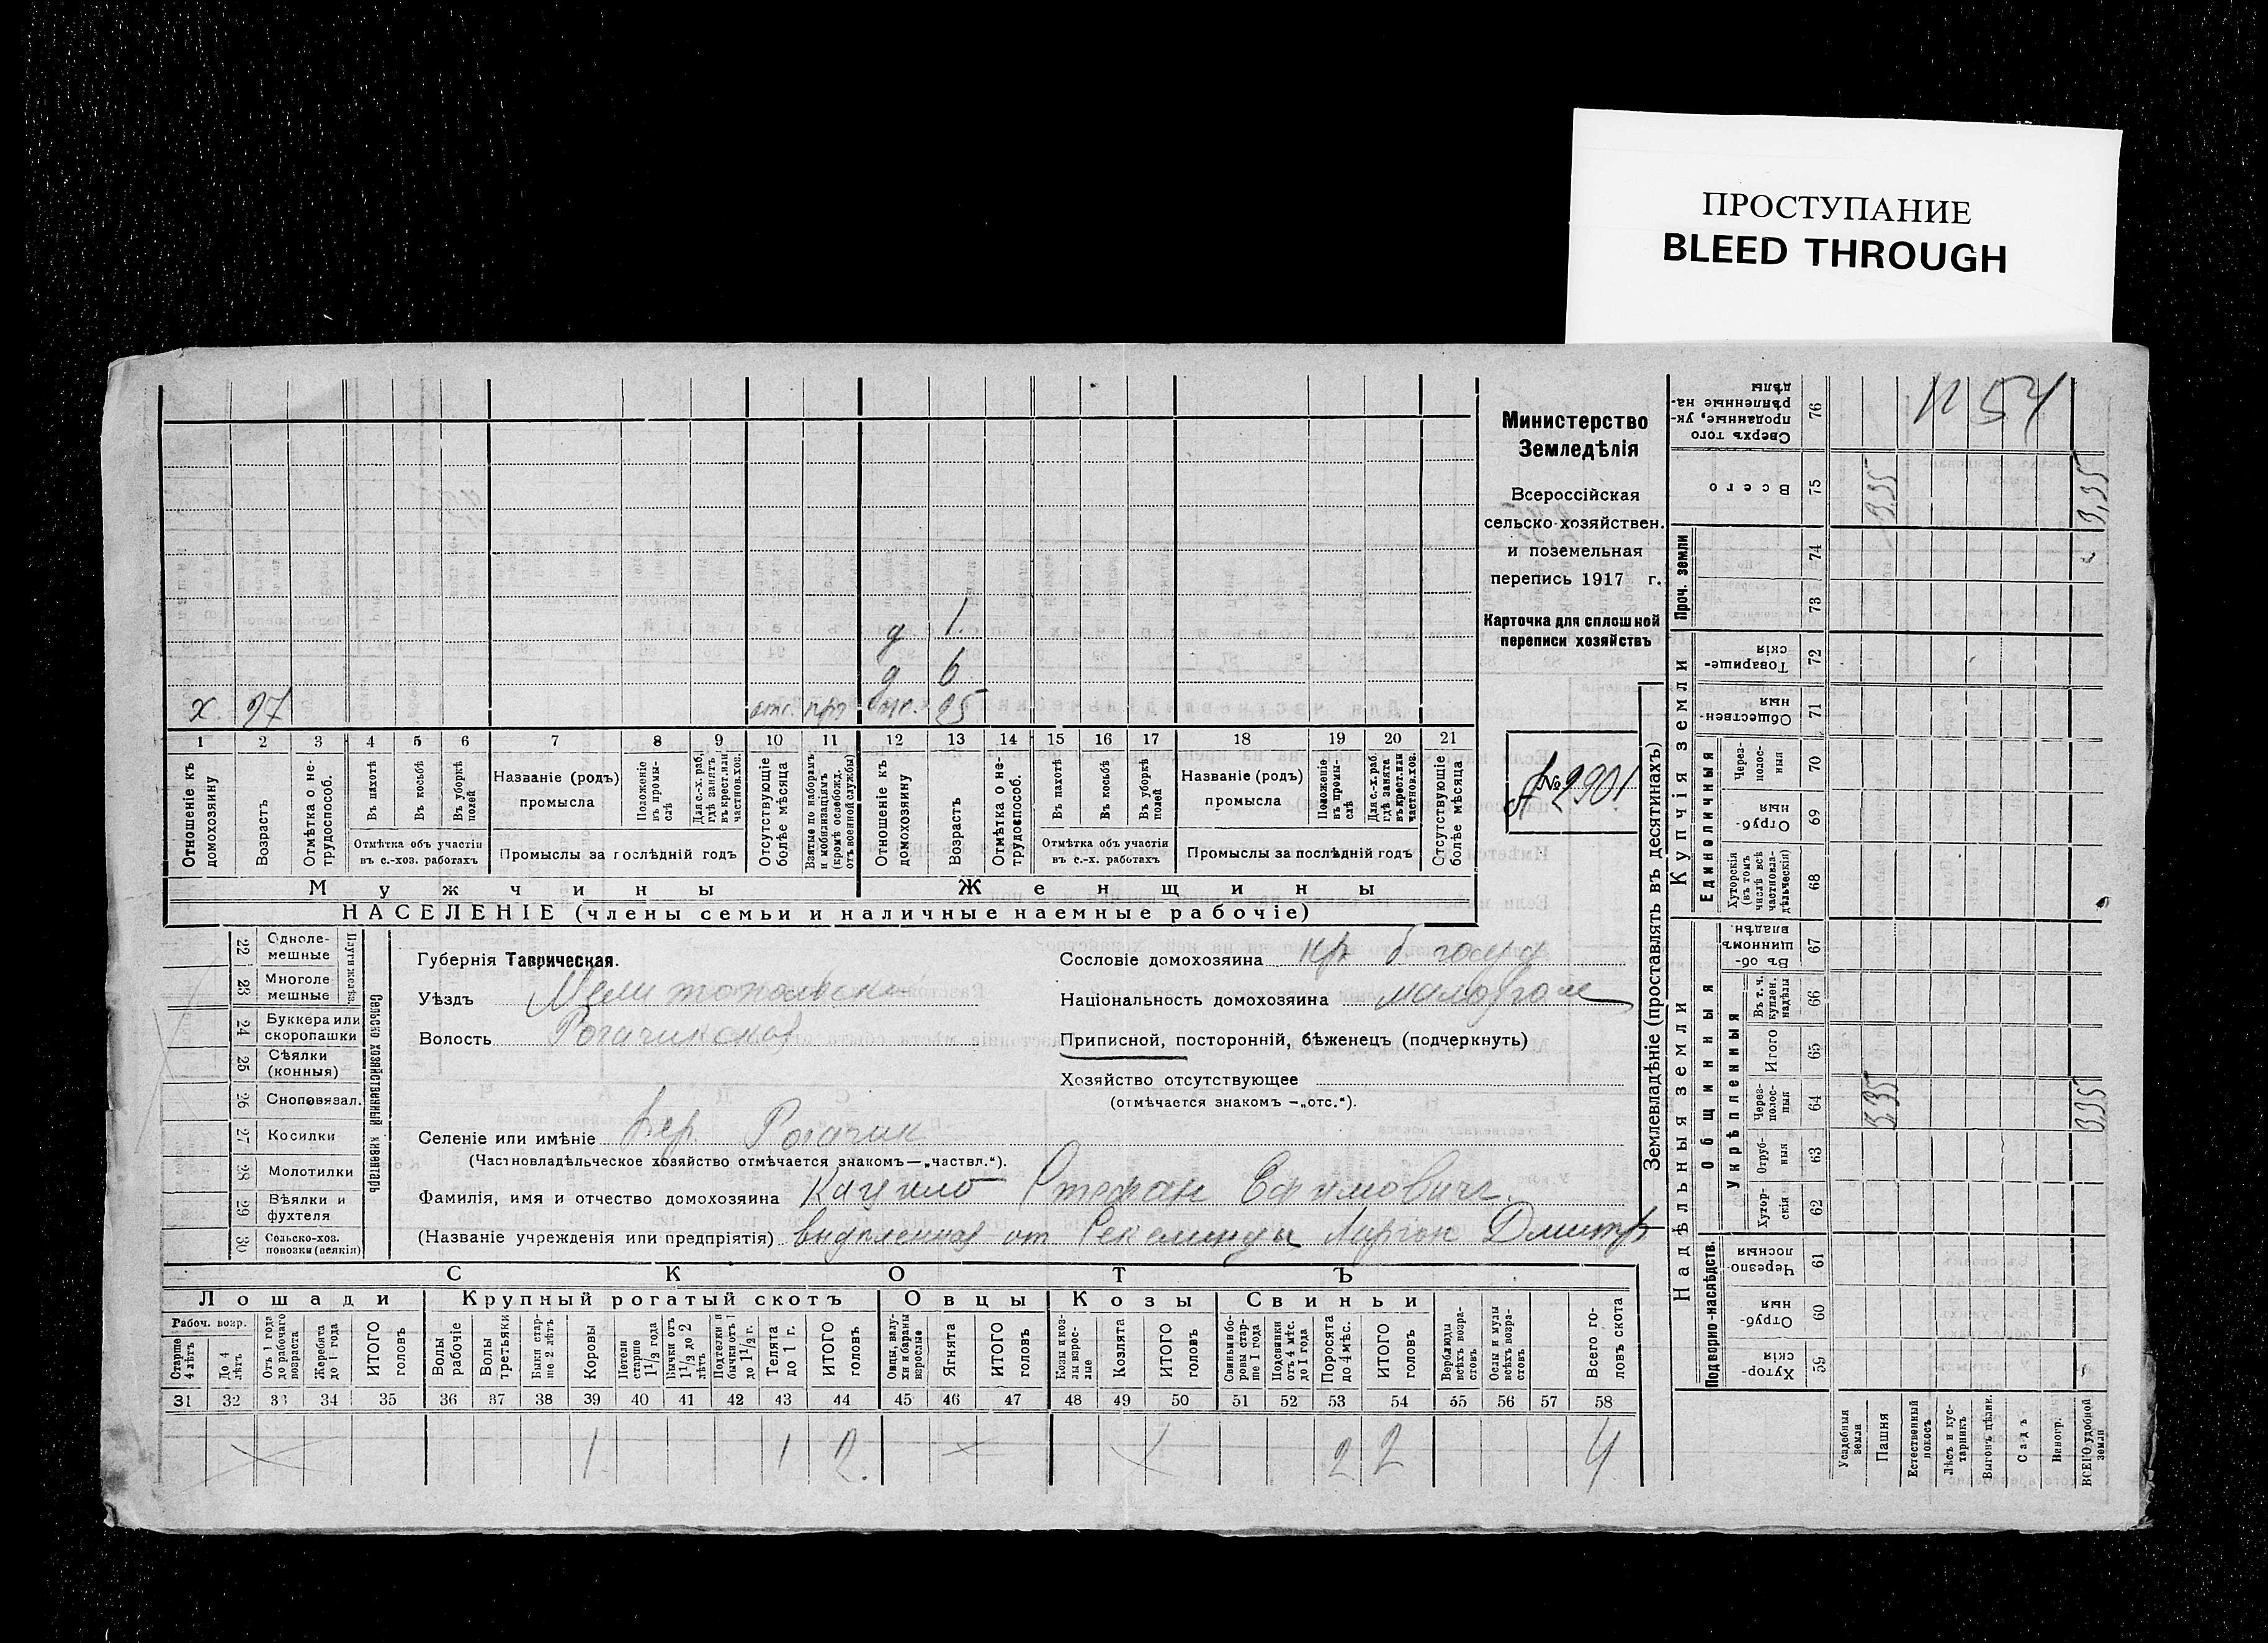 ПРОСТУПАНИЕ
BLEED THROUGH
№ 54
Министерство
Земледѣлія
Всероссійская
сельско-хозяйствен.
и поземельная
перепись 1917 г.
Карточка для сплошной
переписи хозяйствъ
№ 2901
д 1
д 6
х. 27 отс. 25
1 2 3 4 5 6 7 8 9 10 11 12 13 14 15 16 17 18 19 20 21
Отношеніе къ домохозяину
Возрастъ
Отмѣтка о не-трудоспособ.
Въ пахотѣ
Въ косьбѣ
Въ уборкѣ полей
Отмѣтка объ участіи въ с.-хоз. работахъ
Названіе (родъ) промысла
Положеніе въ промы-слѣ
Для с.-х. раб. гдѣ занятъ въ крест. или частнов. хоз.
Промыслы за послѣдній годъ
Отсутствующіе болѣе мѣсяца
Взятые по наборамъ и мобилизаціямъ (кромѣ освобожд. отъ военной службы)
Отношеніе къ домохозяину
Возрастъ
Отмѣтка о не-трудоспособ.
Въ пахотѣ
Въ косьбѣ
Въ уборкѣ полей
Отмѣтка объ участіи въ с.-х. работахъ
Названіе (родъ) промысла
Положеніе въ промы-слѣ
Для с.-х. раб. гдѣ занята въ крест. или частнов. хоз.
Промыслы за послѣдній годъ
Отсутствующіе болѣе мѣсяца
Мужчины Женщины
НАСЕЛЕНІЕ (члены семьи и наличные наемные рабочіе)
Сельско хозяйственный инвентарь
Плуги желѣз.
22 Одноле-мешные
23 Многоле мешные
24 Буккера или скоропашки
25 Сѣялки (конныя)
26 Сноповязал.
27 Косилки
28 Молотилки
29 Вѣялки и фухтеля
30 Сельско-хоз. повозки (всякія)
Губернія Таврическая.
Уѣздъ Мелитопольскі
Волость Рогачинская
Сословіе домохозяина кр
Національность домохозяина малорос
Приписной, посторонній, бѣженецъ (подчеркнуть)
Хозяйство отсутствующее
(отмѣчается знакомъ —„отс.“).
Селеніе или имѣніе Вер. Рогачик
(Частновладѣльческое хозяйство отмѣчается знакомъ—„частвл.“).
Фамилія, имя и отчество домохозяина Стефан Ефимович
(Названіе учрежденія или предпріятія) от
СКОТЪ
Лошади Крупный рогатый скотъ Овцы Козы Свиньи
Рабоч. возр.
Старше 4 лѣтъ
До 4 лѣтъ
Отъ 1 года до рабочаго возраста
Жеребята до 1 года
ИТОГО головъ
Волы рабочіе
Волы третьяки
Быки стар-ше 2 лѣтъ
Коровы
Нетели старше 1 1/2 года
Бычки отъ 1 1/2 до 2 лѣтъ
Подтелки и бычки отъ 1 до 1 1/2 г.
Телята до 1 г.
ИТОГО головъ
Овцы, валу-хи и бараны взрослые
Ягнята
ИТОГО головъ
Козы и коз-лы взрос-лые
Козлята
ИТОГО головъ
Свиньи и бо-ровы стар-ше 1 года
Подсвинки отъ 4 мѣс. до 1 года
Поросята до 4 мѣс.
ИТОГО головъ
Верблюды всѣхъ возра-стовъ
Ослы и мулы всѣхъ возра-стовъ
Всего го-ловъ скота
31 32 33 34 35 36 37 38 39 40 41 42 43 44 45 46 47 48 49 50 51 52 53 54 55 56 57 58
1 1 2. 2 2 4
Землевладѣніе (проставлять въ десятинахъ)
Надѣльныя земли
Купчія земли
Проч. земли
Подворно-наслѣдств.
Общинныя
Укрѣпленныя
Единоличныя
59 Хутор-скія
60 Отруб-ныя
61 Черезпо-лосныя
62 Хутор-скія
63 Отруб-ныя
64 Через-полос-ныя 3,35 3,35
65 Итого
66 Въ т. ч. куплен. надѣлы
67 Въ об-щинномъ владѣн.
68 Хуторскія (въ томъ числѣ всѣ частновла-дѣльческія)
69 Отруб-ныя
70 Через-полос-ныя
71 Обществен-ныя
72 Товарище-скія
73
74
75 Всего 3,35 3,35
76 Сверхъ того проданные, ук-рѣпленные на-дѣлы
Усадебныя земли
Пашня
Естественный покосъ
Лѣсъ и кус-тарникъ
Выгонъ цѣлин.
Садъ
Виногр.
ВСЕГО удобной земли